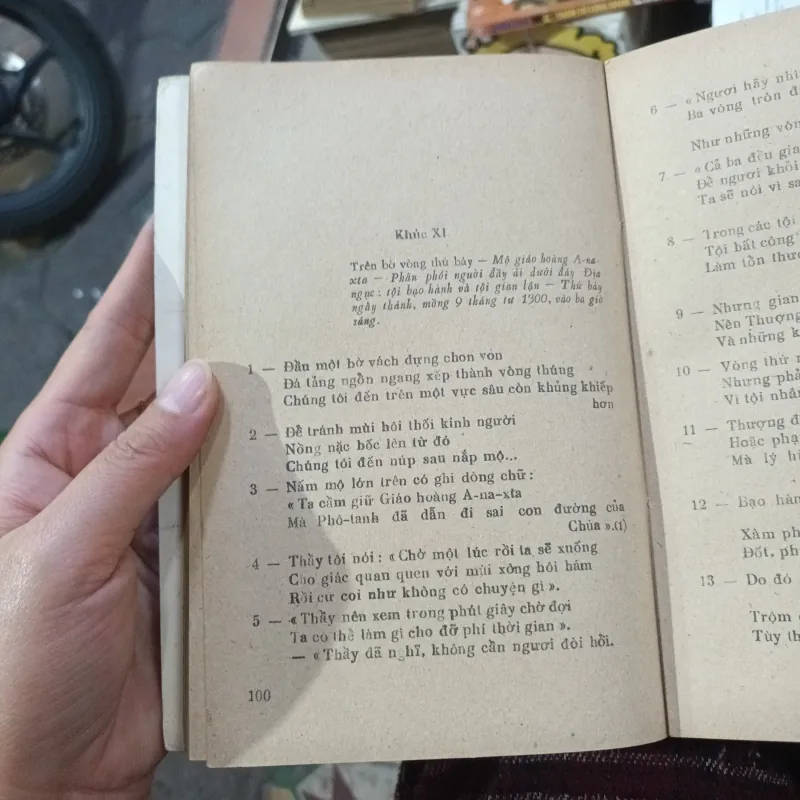 Khúc XI
Trên bờ vòng thứ bảy — Mộ giáo hoàng A-na-
xta — Phân phối người đầy ải dưới đáy Địa
ngục : tội bạo hành và tội gian lận — Thứ bảy
ngày thánh, mồng 9 tháng tư 1300, vào ba giờ
sáng.
1 — Đầu một bờ vách dựng chon von
Đá tảng ngồn ngang xếp thành vòng thúng
Chúng tôi đến trên một vực sâu còn khủng khiếp
hơn
2 — Để tránh mùi hôi thối kinh người
Nồng nặc bốc lên từ đó
Chúng tôi đến núp sau nắp mộ...
3 — Nấm mộ lớn trên có ghi dòng chữ :
« Ta cầm giữ Giáo hoàng A-na-xta
Mà Phô-tanh đã dẫn đi sai con đường của
Chúa ».(1)
4 — Thầy tôi nói : « Chờ một lúc rồi ta sẽ xuống
Cho giác quan quen với mùi xông hôi hám
Rồi cứ coi như không có chuyện gì ».
5 — « Thầy nên xem trong phút giây chờ đợi
Ta có thể làm gì cho đỡ phí thời gian ».
— « Thầy đã nghĩ, không cần ngươi đòi hỏi.
100
6 — « Ngươi hãy
Ba vòng tròn
Như những vòng
7 — « Cả ba đều
Để ngươi khỏi
Ta sẽ nói vì
8 — Trong các tội
Tội bất công
Làm tổn
9 — Nhưng gian
Nên Thượng
Và những
10 — Vòng thứ
Nhưng
Vì tội nhân
11 — Thượng
Hoặc
Mà lý
12 — Bạo hàn
Xâm
Đốt,
13 — Do đó
Trộm
Tùy